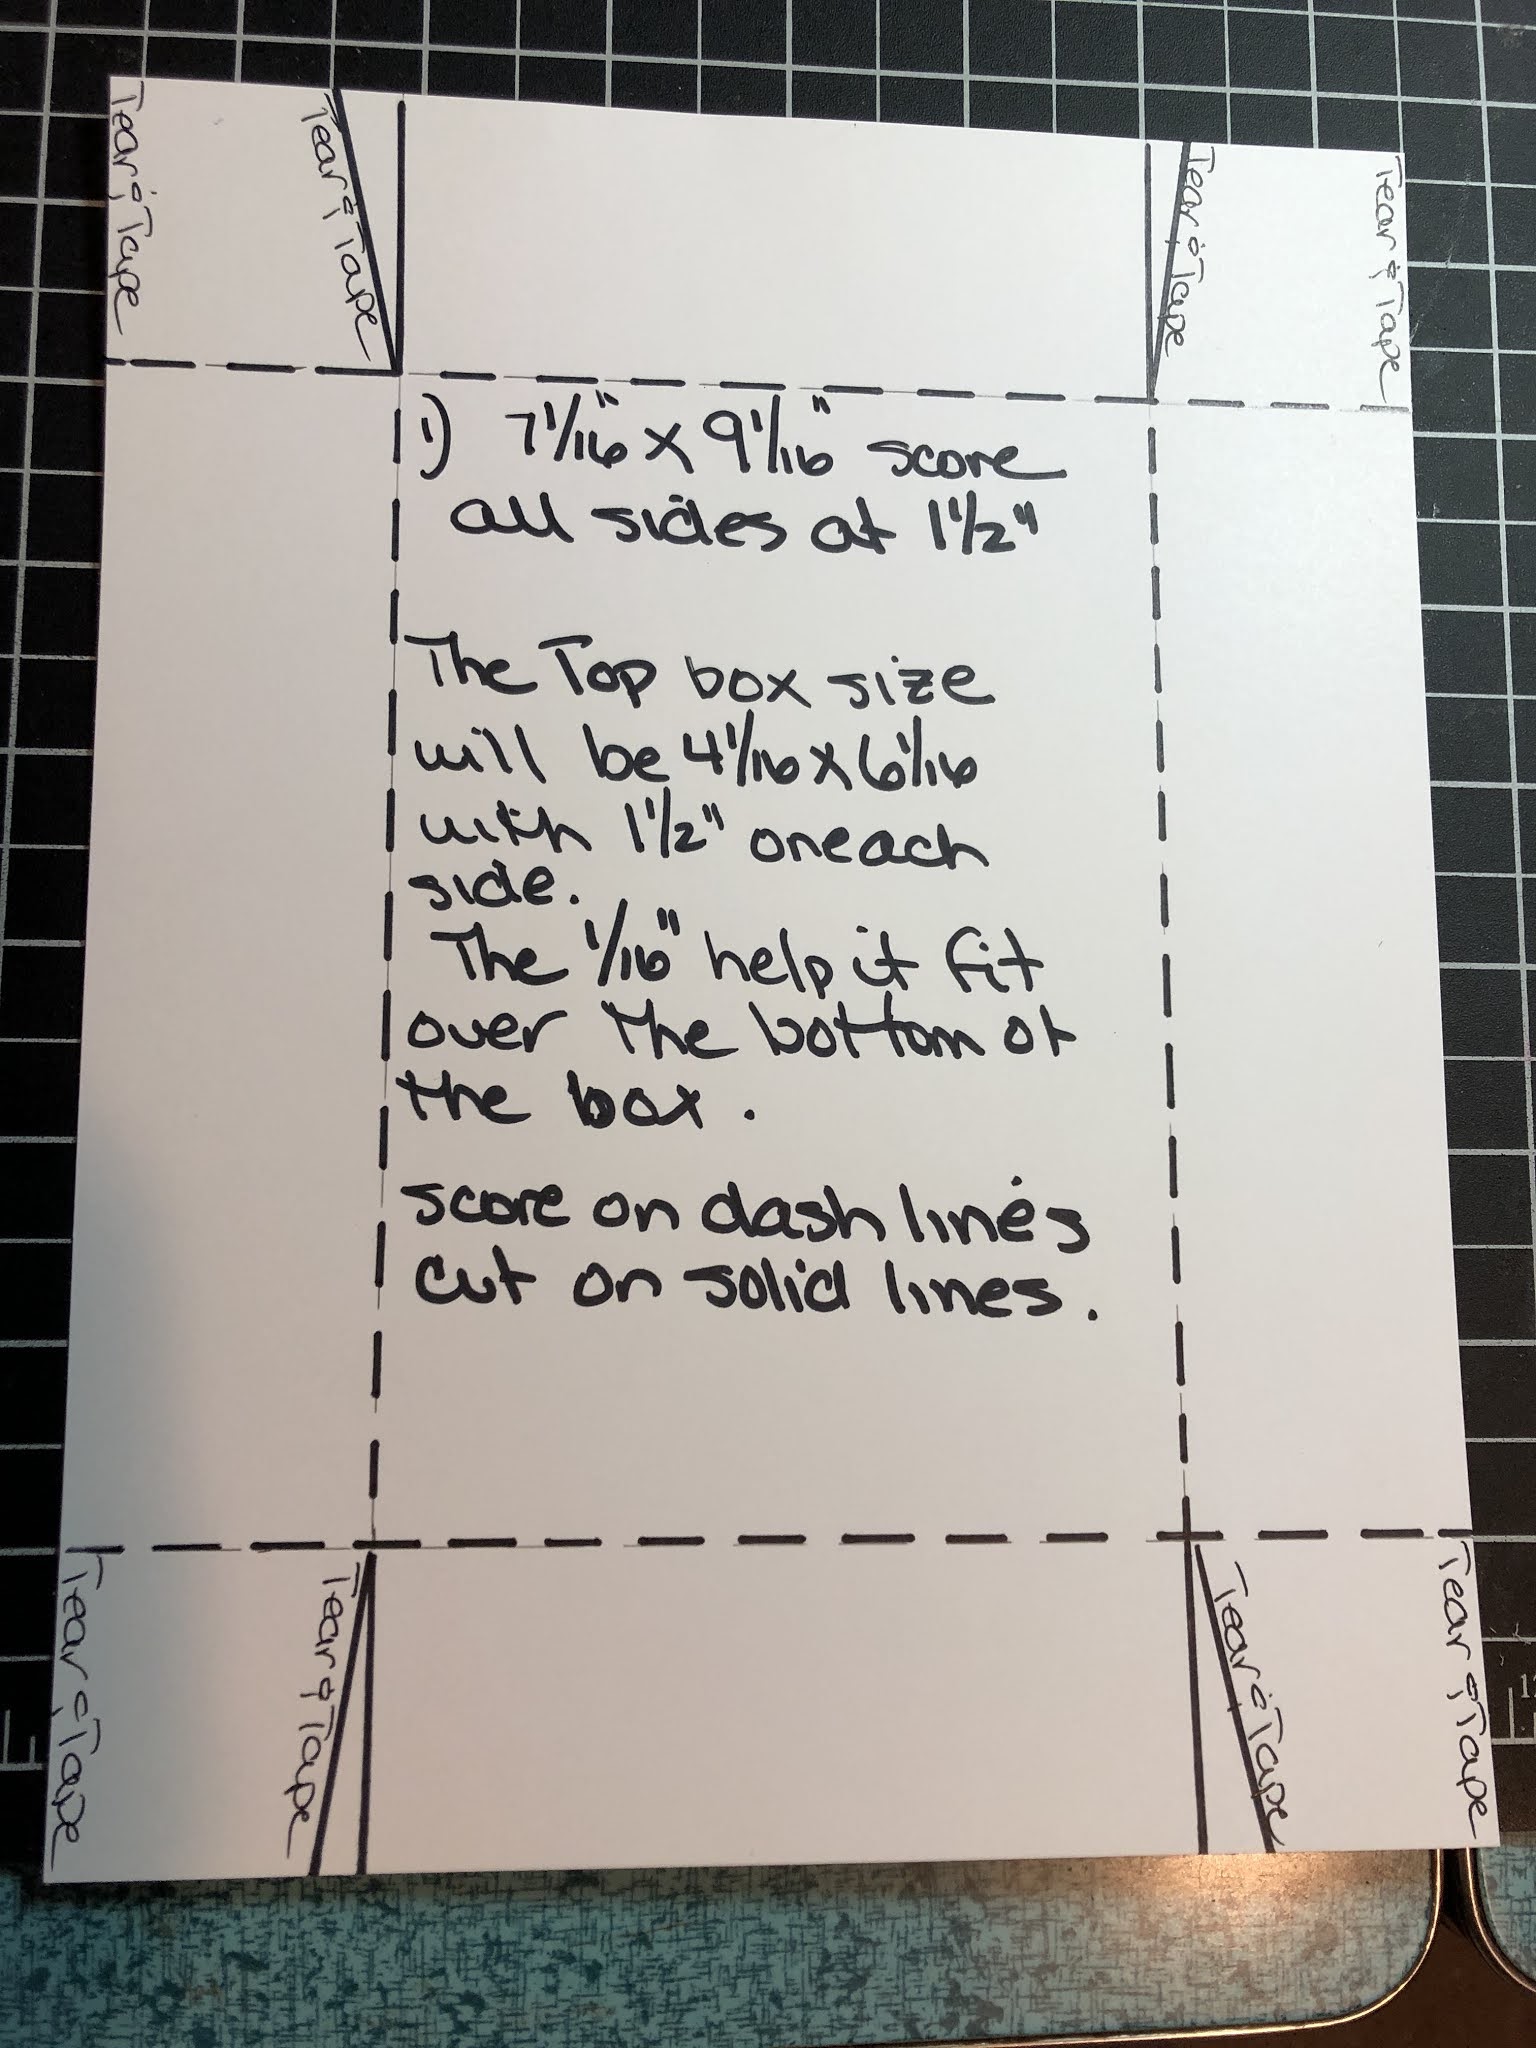 Tear & Tape
Tear & Tape
Tear & Tape
Tear & Tape
1) 7 1/16" x 9 1/16" score
all sides at 1 1/2"
The Top box size
will be 4 1/16 x 6 1/16
with 1 1/2" on each
side.
The 1/16" help it fit
over the bottom of
the box.
score on dash lines
cut on solid lines.
Tear & Tape
Tear & Tape
Tear & Tape
Tear & Tape